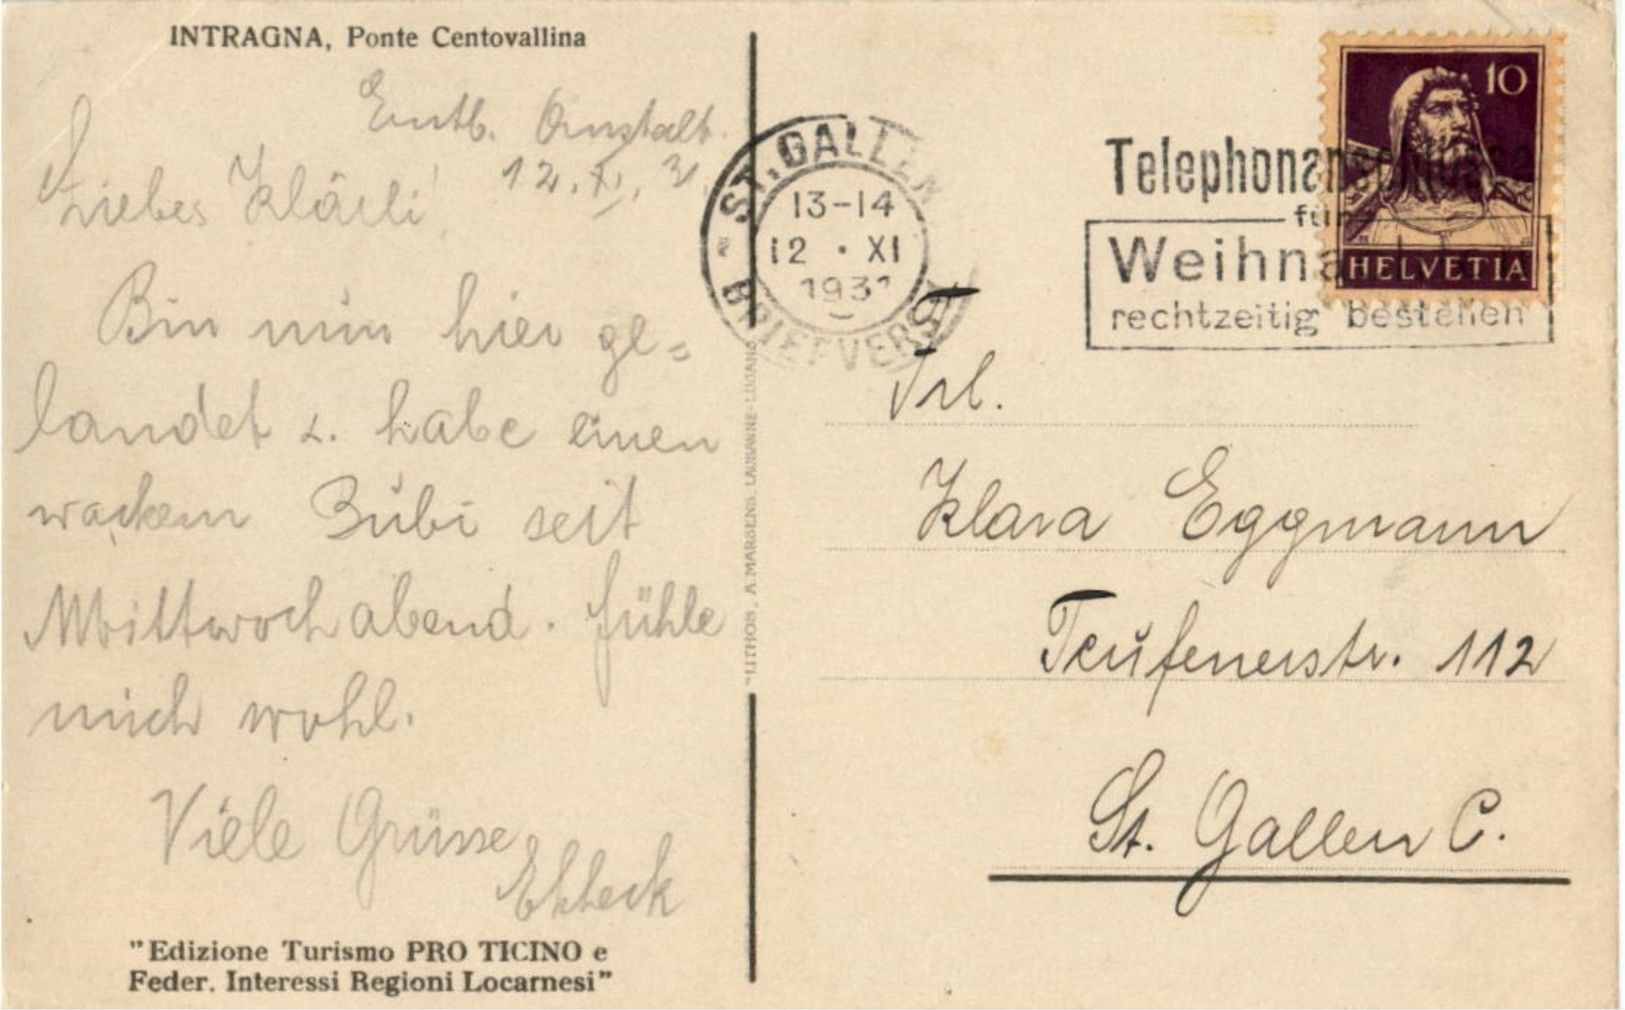 INTRAGNA, Ponte Centovallina
Entb. Anstalt.
12. XI. 31.
Liebes Klärli!
Bin nun hier ge-
landet u. habe einen
wackern Bubi seit
Mittwoch abend. Fühle
mich wohl.
Viele Grüsse
"Edizione Turismo PRO TICINO e
Feder. Interessi Regioni Locarnesi"
"LITHOS, A. MARSENS, LAUSANNE-LUGANO
ST. GALLEN
13-14
12 · XI
1931
BRIEFVERS
Telephonanschlüsse
für
Weihnachten
rechtzeitig bestellen
10
HELVETIA
Frl.
Klara Eggmann
Teufenerstr. 112
St. Gallen C.